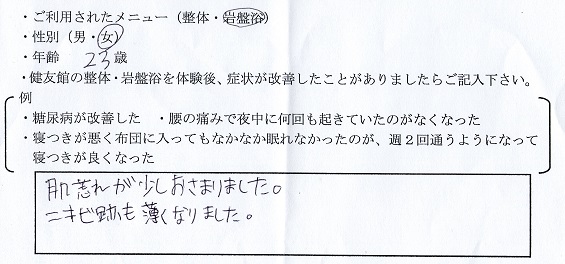 ・ご利用されたメニュー（整体・岩盤浴）
・性別（男・女）
・年齢 23歳
・健友館の整体・岩盤浴を体験後、症状が改善したことがありましたらご記入下さい。
例
・糖尿病が改善した ・腰の痛みで夜中に何回も起きていたのがなくなった
・寝つきが悪く布団に入ってもなかなか眠れなかったのが、週２回通うようになって
寝つきが良くなった
肌荒れが少しおさまりました。
ニキビ跡も薄くなりました。